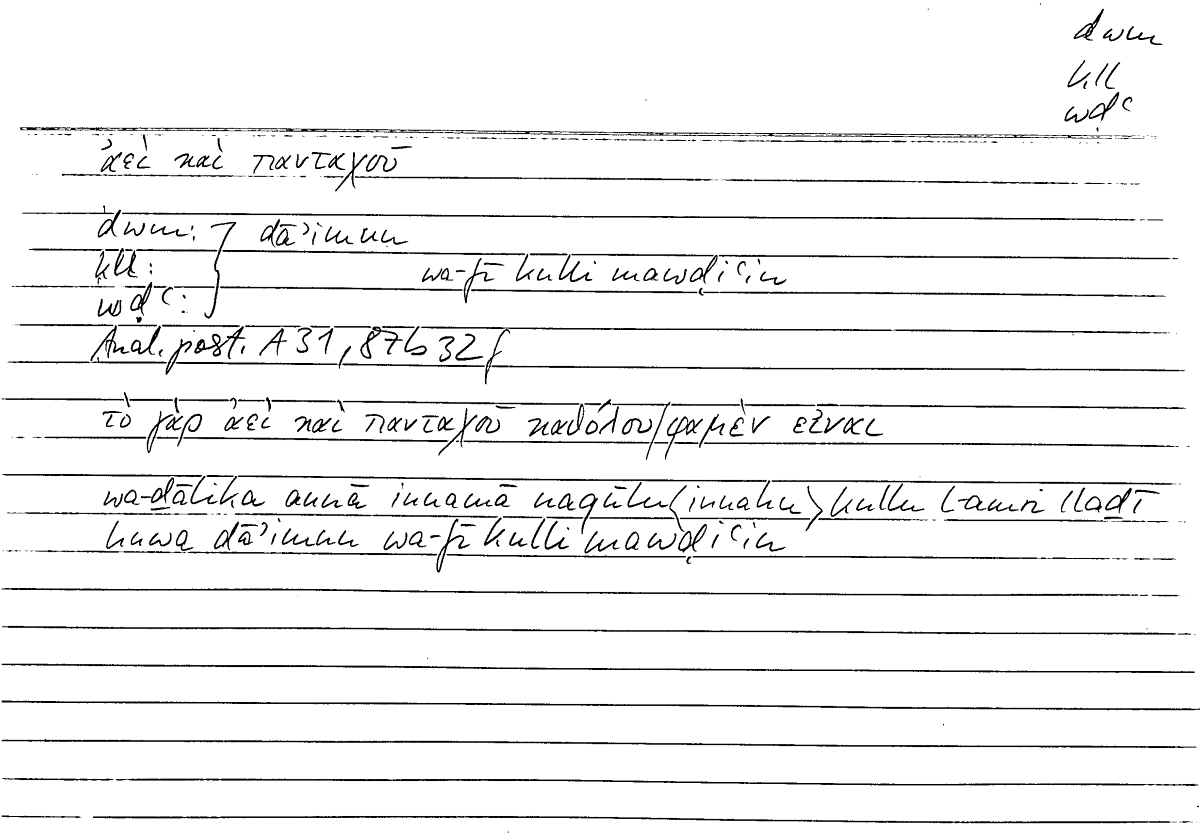 dwm
kll
wḍʿ
ἀεὶ καὶ πανταχοῦ
dwm: } dāʾimun
kll: wa-fī kulli mawḍiʿin
wḍʿ:
Anal. post. A 31, 87b 32 f
τὸ γὰρ ἀεὶ καὶ πανταχοῦ καθόλου/φαμὲν εἶναι
wa-ḏālika annā innamā naqūlu ⟨innahu⟩ kullu l-amri llaḏī
huwa dāʾimun wa-fī kulli mawḍiʿin